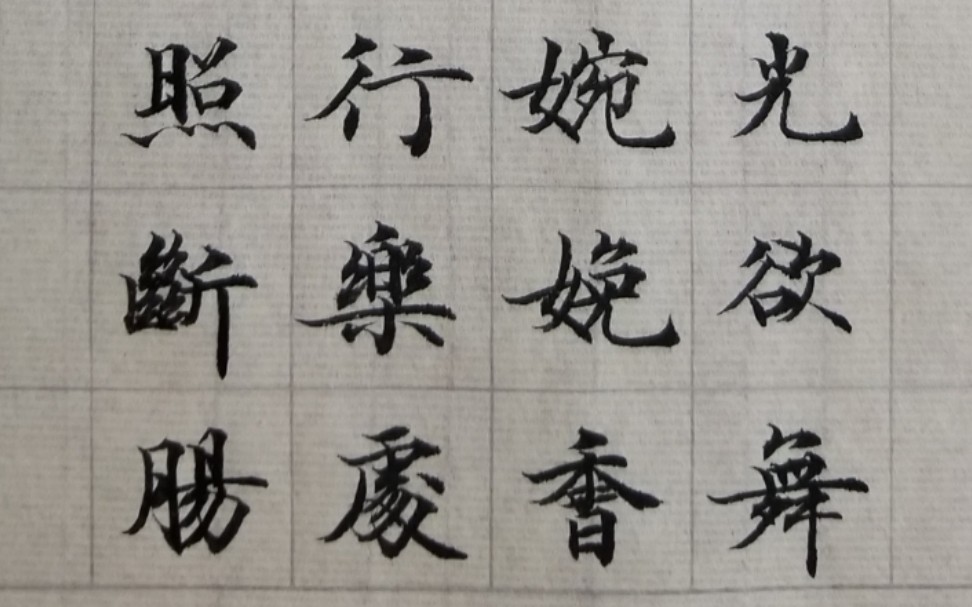 光欲舞
婉娩香
行樂處
照斷腸